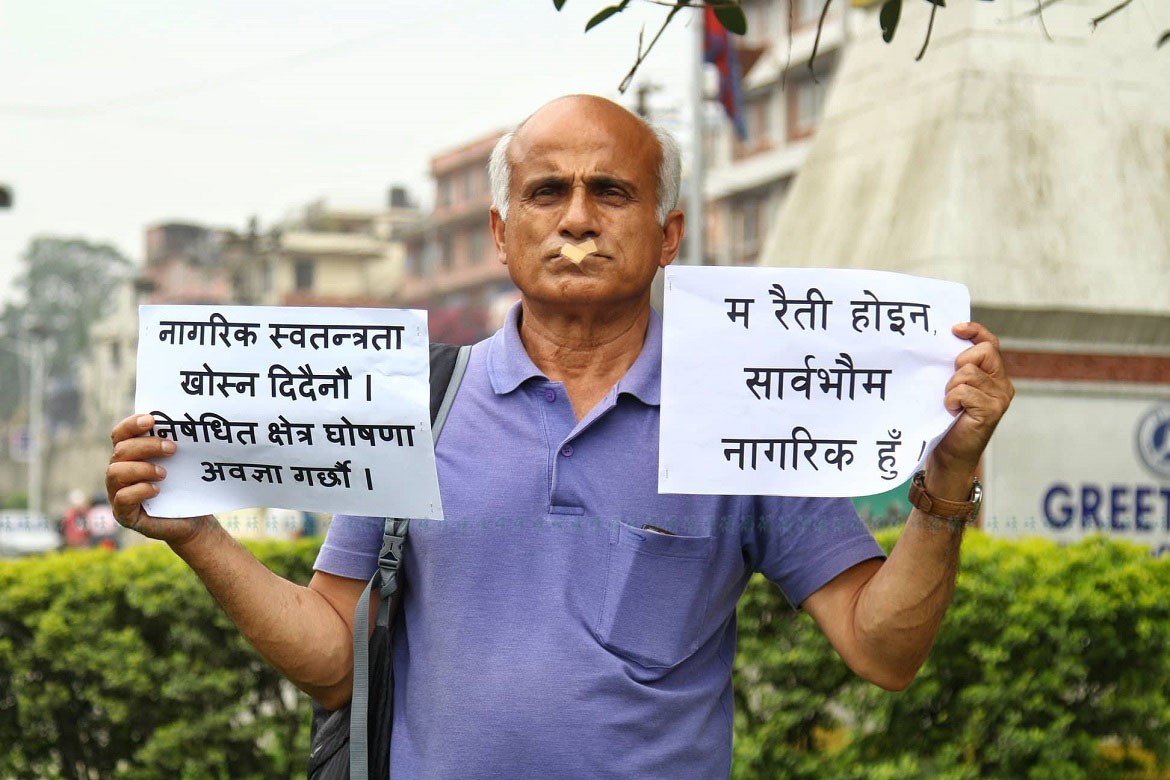 नागरिक स्वतन्त्रता
खोस्न दिदैनौ ।
निषेधित क्षेत्र घोषणा
अवज्ञा गर्छौ ।
म रैती होइन,
सार्वभौम
नागरिक हुँ ।
GREET